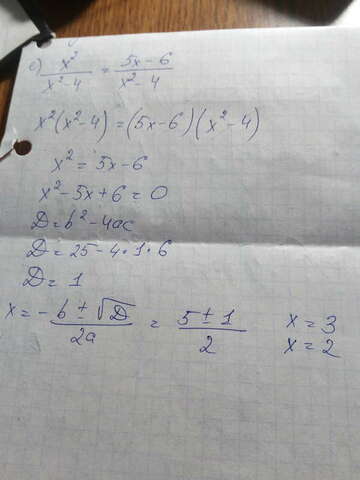 c) x²/(x²-4) = (5x-6)/(x²-4)
x²(x²-4) = (5x-6)(x²-4)
x² = 5x-6
x²-5x+6=0
D=b²-4ac
D=25-4·1·6
D=1
x = -b±√D/2a = 5±1/2 x=3
x=2